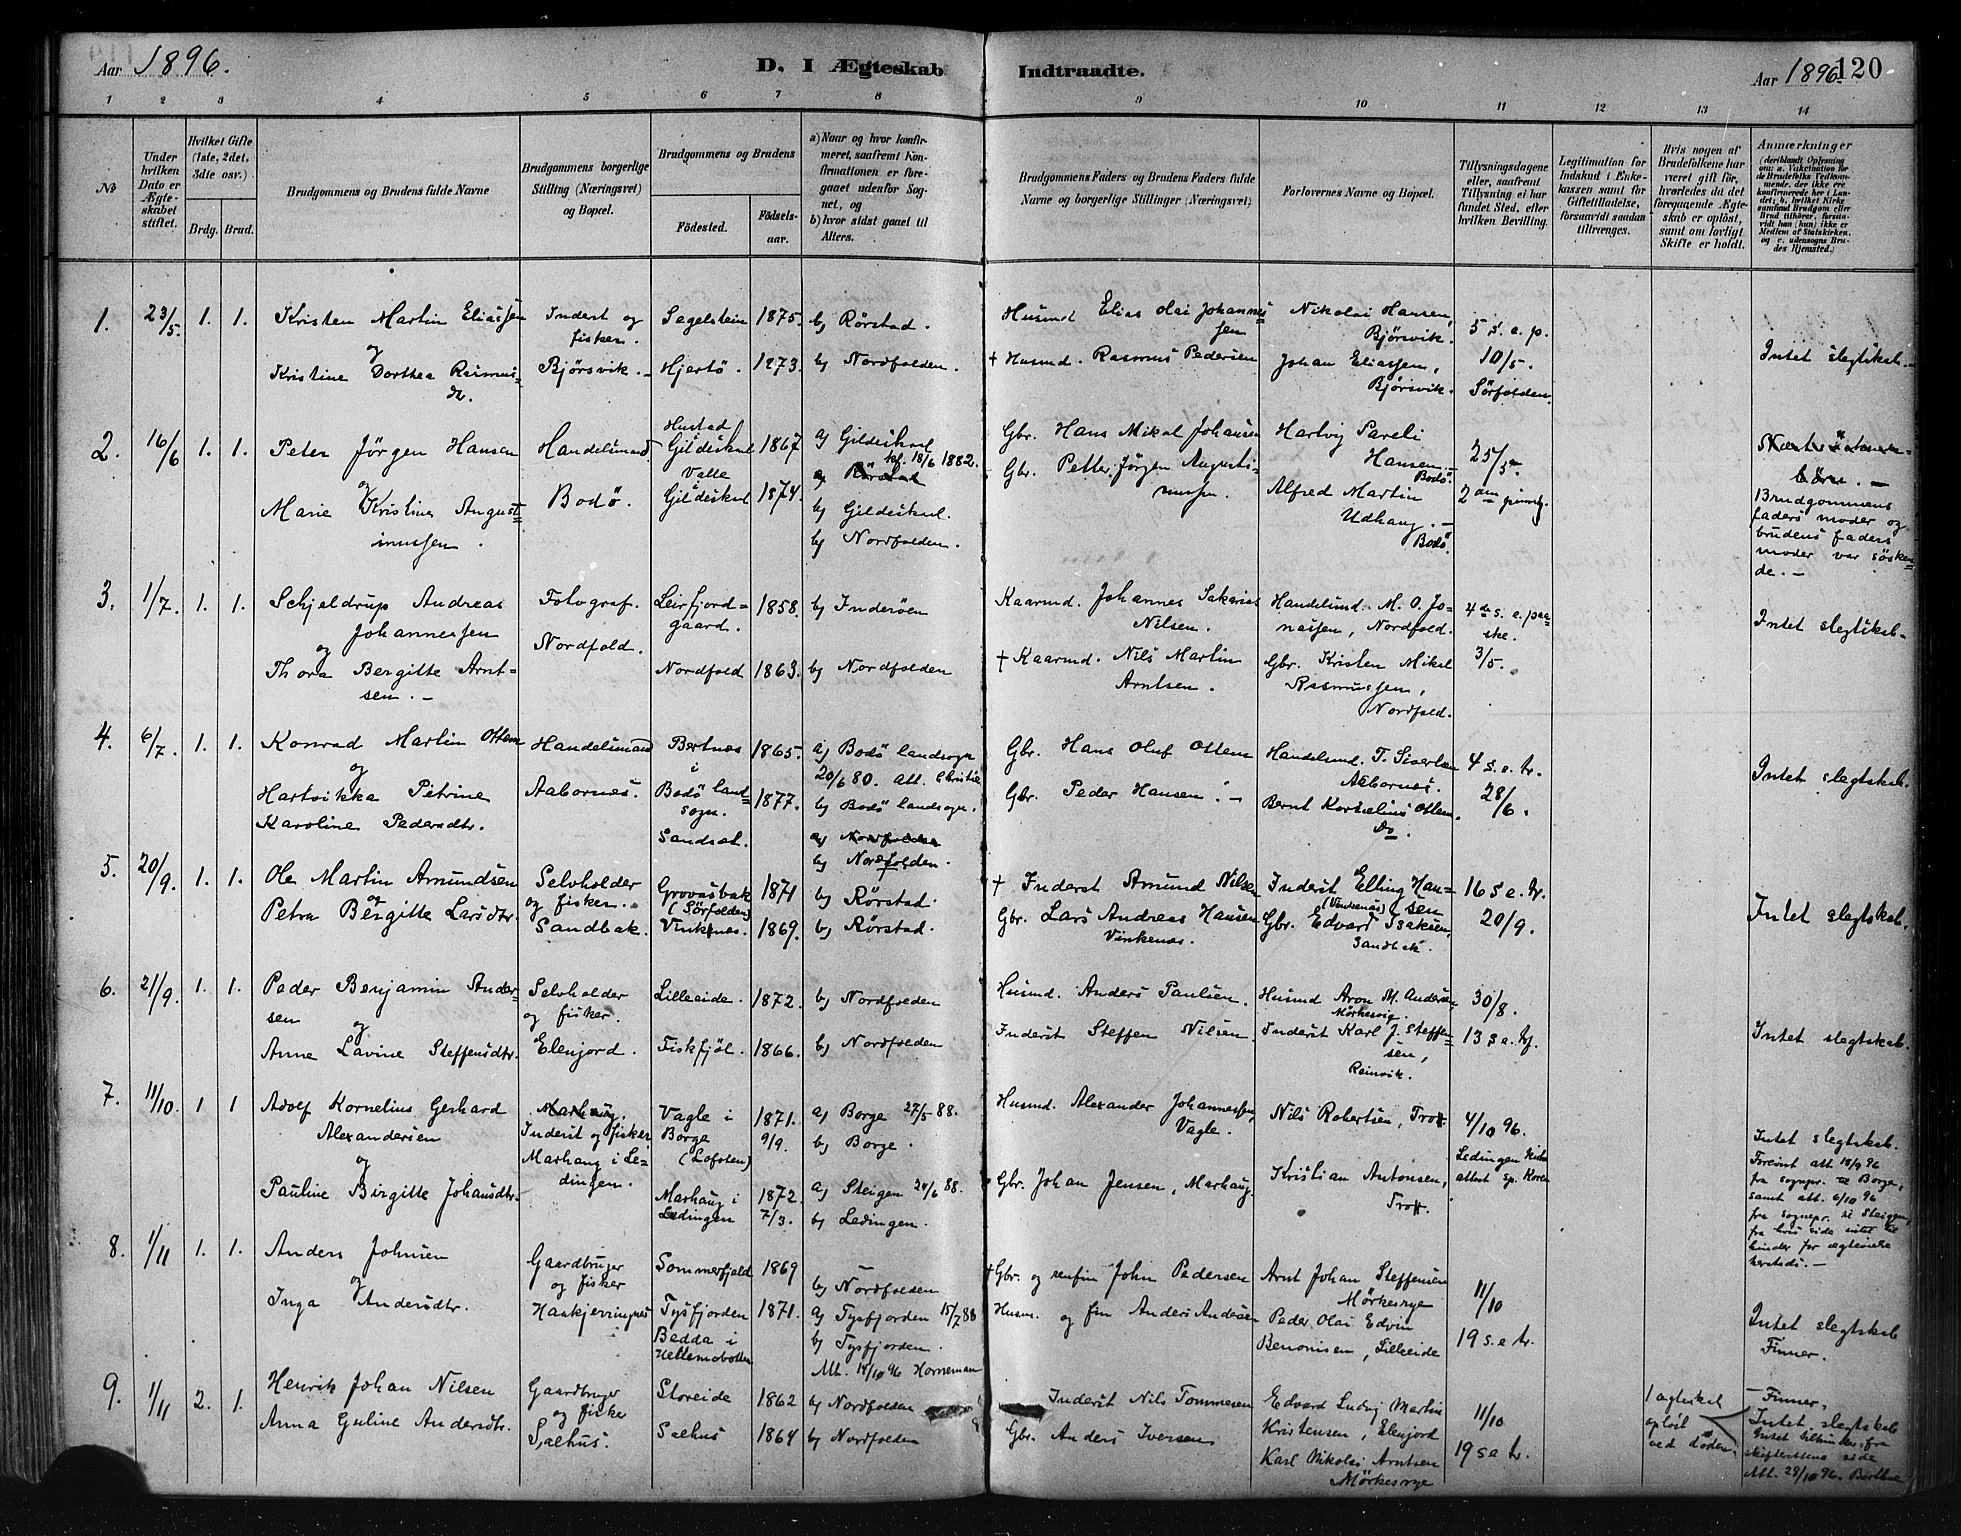 Aar 1896.
D. I Ægteskab Indtraadte.
Aar 1896.
120
1 2 3 4 5 6 7 8 9 10 11 12 13 14
No
Under hvilken Dato er Ægteskabet stiftet.
Hvilket Gifte (1ste, 2det, 3dte osv.)
Brdg. Brud.
Brudgommens og Brudens fulde Navne
Brudgommens borgerlige Stilling (Næringsvei) og Bopæl.
Brudgommens og Brudens
Fødested.
Fødselsaar.
a) Naar og hvor konfirmeret, saafremt Konfirmationen er foregaaet udenfor Sognet, og
b) hvor sidst gaaet til Alters.
Brudgommens Faders og Brudens Faders fulde Navne og borgerlige Stillinger (Næringsvei)
Forlovernes Navne og Bopæl.
Tillysningsdagene eller, saafremt Tillysning ei har fundet Sted, efter hvilken Bevilling.
Legitimation for Indskud i Enkekassen samt for Giftetilladelse, forsaavidt saadan tiltrænges.
Hvis nogen af Brudefolkene har været gift før, hvorledes da det foregaaende Ægteskab er opløst, samt om lovligt Skifte er holdt.
Anmærkninger
1. 23/5. 1. 1.
Kristen Martin Eliassen
og
Kristine Dorthea Rasmusdr.
Inderst og fisker.
Bjørsvik.
Segelstein 1875.
Hjertö. 1873.
b) Rørstad.
b) Nordfolden.
Husmd Elias Olai Johannessen
† Husmd. Rasmus Pedersen
Nikolai Hansen, Bjørsvik.
Johan Eliassen, Bjørsvik.
5 s. e. p.
10/5.
Sörfolden.
Intet slegtskab.
2. 16/6 1. 1.
Peter Jörgen Hansen
og
Marie Kristine Augustinussen.
Handelsmand.
Bodö.
Hustad
Gildeskaal 1867
Valle
Gildeskaal 1874.
a) Gildeskaal
kf. 18/6 1882.
b) Gildeskaal.
b) Nordfolden.
Gbr. Hans Mikal Johansen
Gbr. Petter Jörgen Augustinussen.
Hartvig Pareli Hansen. Bodö.
Alfred Martin Udhaug. Bodö.
25/5.
2den pinsdg.
Brudgommens
faders moder og
brudens faders
moder var söskende.
3. 1/7. 1. 1.
Schjeldrup Andreas
Johannessen
og
Thora Bergitte Arntsen.
Fotograf.
Nordfold.
Leirfjordgaard. 1858.
Nordfold 1863.
b) Inderöen
b) Nordfolden
Kaarmd. Johannes Sakarias Nilsen.
† Kaarmd. Nils Martin Arntsen.
Handelsmd. M. O. Jonassen, Nordfold.
Gbr. Kristen Mikal Rasmussen, Nordfold.
4de s. e. paaske.
3/5.
Intet slegtskab.
4. 6/7. 1. 1.
Konrad Martin Ottem
og
Hartvikka Petrine
Karoline Pedersdtr.
Handelsmand
Aabornes.
Bertnes i Bodö landsogn. 1865.
Sandsæt. 1877.
a) Bodö landsogn
20/6 80. att. Christie
b) Bodö landsogn.
b) Nordfolden.
Gbr. Hans Oluf Ottem
Gbr. Peder Hansen.
Handelsmd. T. Sivertsen Aabornes.
Bernt Kornelius Ottem. Do.
4 s. e. tr.
28/6.
Intet slegtskab.
5. 20/9. 1. 1.
Ole Martin Amundsen
og
Petra Bergitte Larsdtr.
Selvholder og fisker.
Sandbak.
Grovasbak (Sörfolden) 1871
Vinkenes. 1869.
b) Rørstad
b) Rørstad.
† Inderst Amund Nilsen
Gbr. Lars Andreas Hansen Vinkenes.
Inderst Elling Hansen (Vinkenes)
Gbr. Edvard Isaksen, Sandbak.
16 s. e. tr.
20/9.
Intet slegtskab.
6. 21/9. 1. 1.
Peder Benjamin Andersen
og
Anne Lavine Steffensdtr.
Selvholder og fisker.
Elenjord.
Lilleeide. 1872.
Fiskfjöl. 1866.
b) Nordfolden
b) Nordfolden
Husmd. Anders Paulsen.
Inderst Steffen Nilsen.
Husmd Aron M. Andersen, Mörkesvig.
Inderst Karl J. Steffensen, Reinvik.
30/8.
13 s e. tr.
Intet slegtskab.
7. 11/10. 1 1
Adolf Kornelius Gerhard
Alexandersen
og
Pauline Birgitte Johansdtr.
Marhaug.
Inderst og fisker
Marhaug i Ledingen.
Vagle i Borge (Lofoten) 1871. 9/9.
Marhaug i Ledingen 1872. 7/3.
a) Borge 27/5 88.
b) Borge.
a) Steigen 24/6 88.
b) Ledingen.
Husmd. Alexander Johannessen, Vagle.
Gbr. Johan Jensen, Marhaug.
Nils Robertsen,
Kristian Antonsen,
4/10 96.
Intet slegtskab.
8. 1/11 1. 1.
Anders Johnsen
og
Inga Andersdtr.
Gaardbruger og fisker
Haakjerringnes
Sommerfjeld 1869
Tysfjorden 1871.
Hellemobotten
b) Nordfolden
a) Tysfjorden 15/7 88
b) Tysfjorden.
Att. 14/10 96 Horneman
† Gbr. og renfin John Pedersen
Husm. og fin Anders Andersen
Arnt Johan Steffensen Mörkesvye
Peder Olai Edvin Benonisen, Lilleeide
11/10
19 s. e tr.
Intet slegtskab
Finner.
9. 1/11 2. 1.
Henrik Johan Nilsen
Anna Guline Andersdtr.
Gaardbruger og fisker
Salhus.
Storeide 1862
Salhus 1864
b) Nordfolden
b) Nordfolden
Inderst Nils Tommesen
Gbr. Anders Iversen
Edvard Ludvig Martin Kristensen, Elenjord
Karl Nikolai Arntsen Mörkesvye
11/10
19 s e tr.
1 ægteskab
opløst
ved døden.
Finner.
Intet slegtskab
Att. 28/10 96